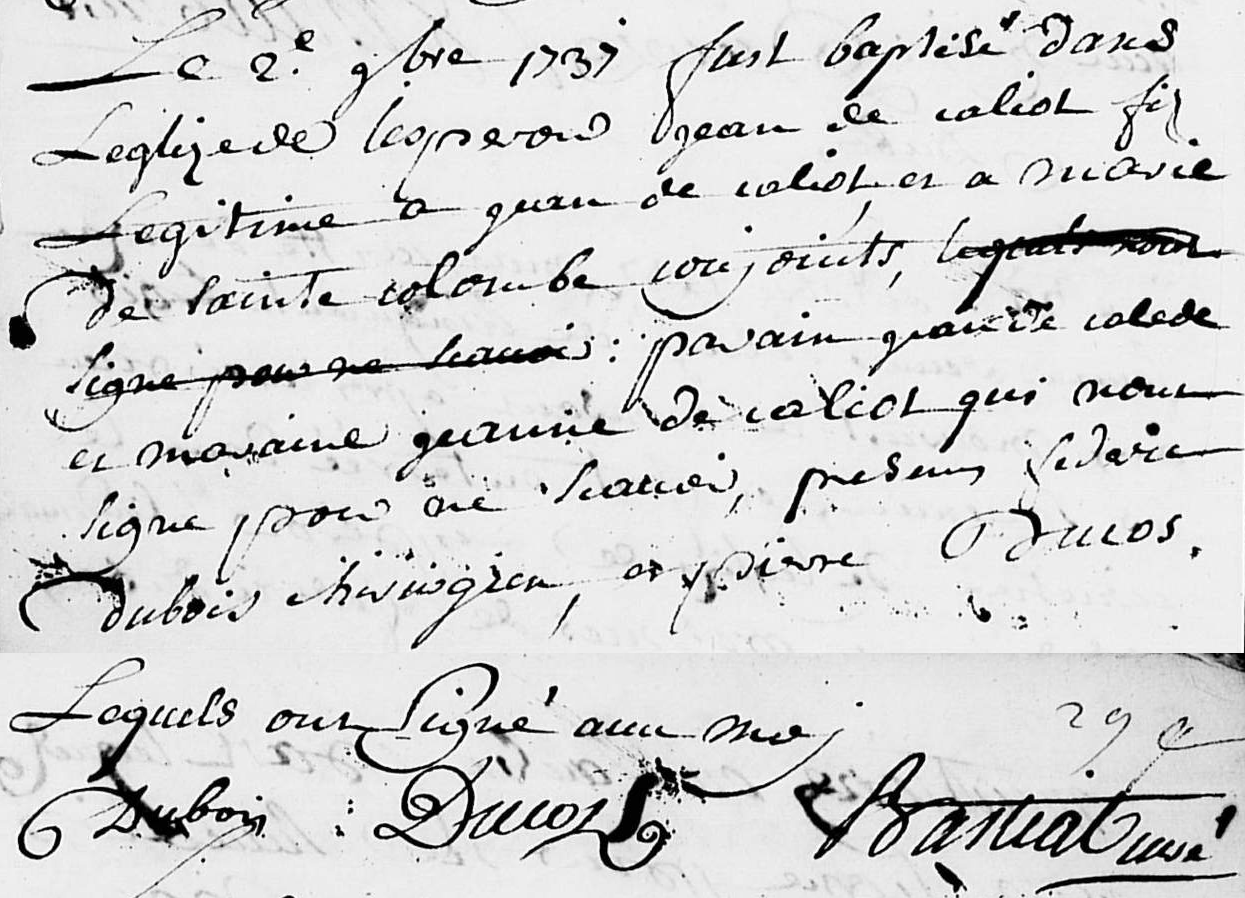 Le 2.e 9bre 1737 fust baptisé dans
Leglize de lesperon jean de caliot fiz
Legitime a jean de caliot, et a marie
De sainte colombe conjoints, lequels nont
signe pour ne scavoir : parain jean de
et maraine jeanne de caliot qui nont
signe pour ne scavoir, presens
Dubois chirurgien, et pierre Ducos.
Lequels ont signé avec moy
Dubois : Ducos Bastiat curé